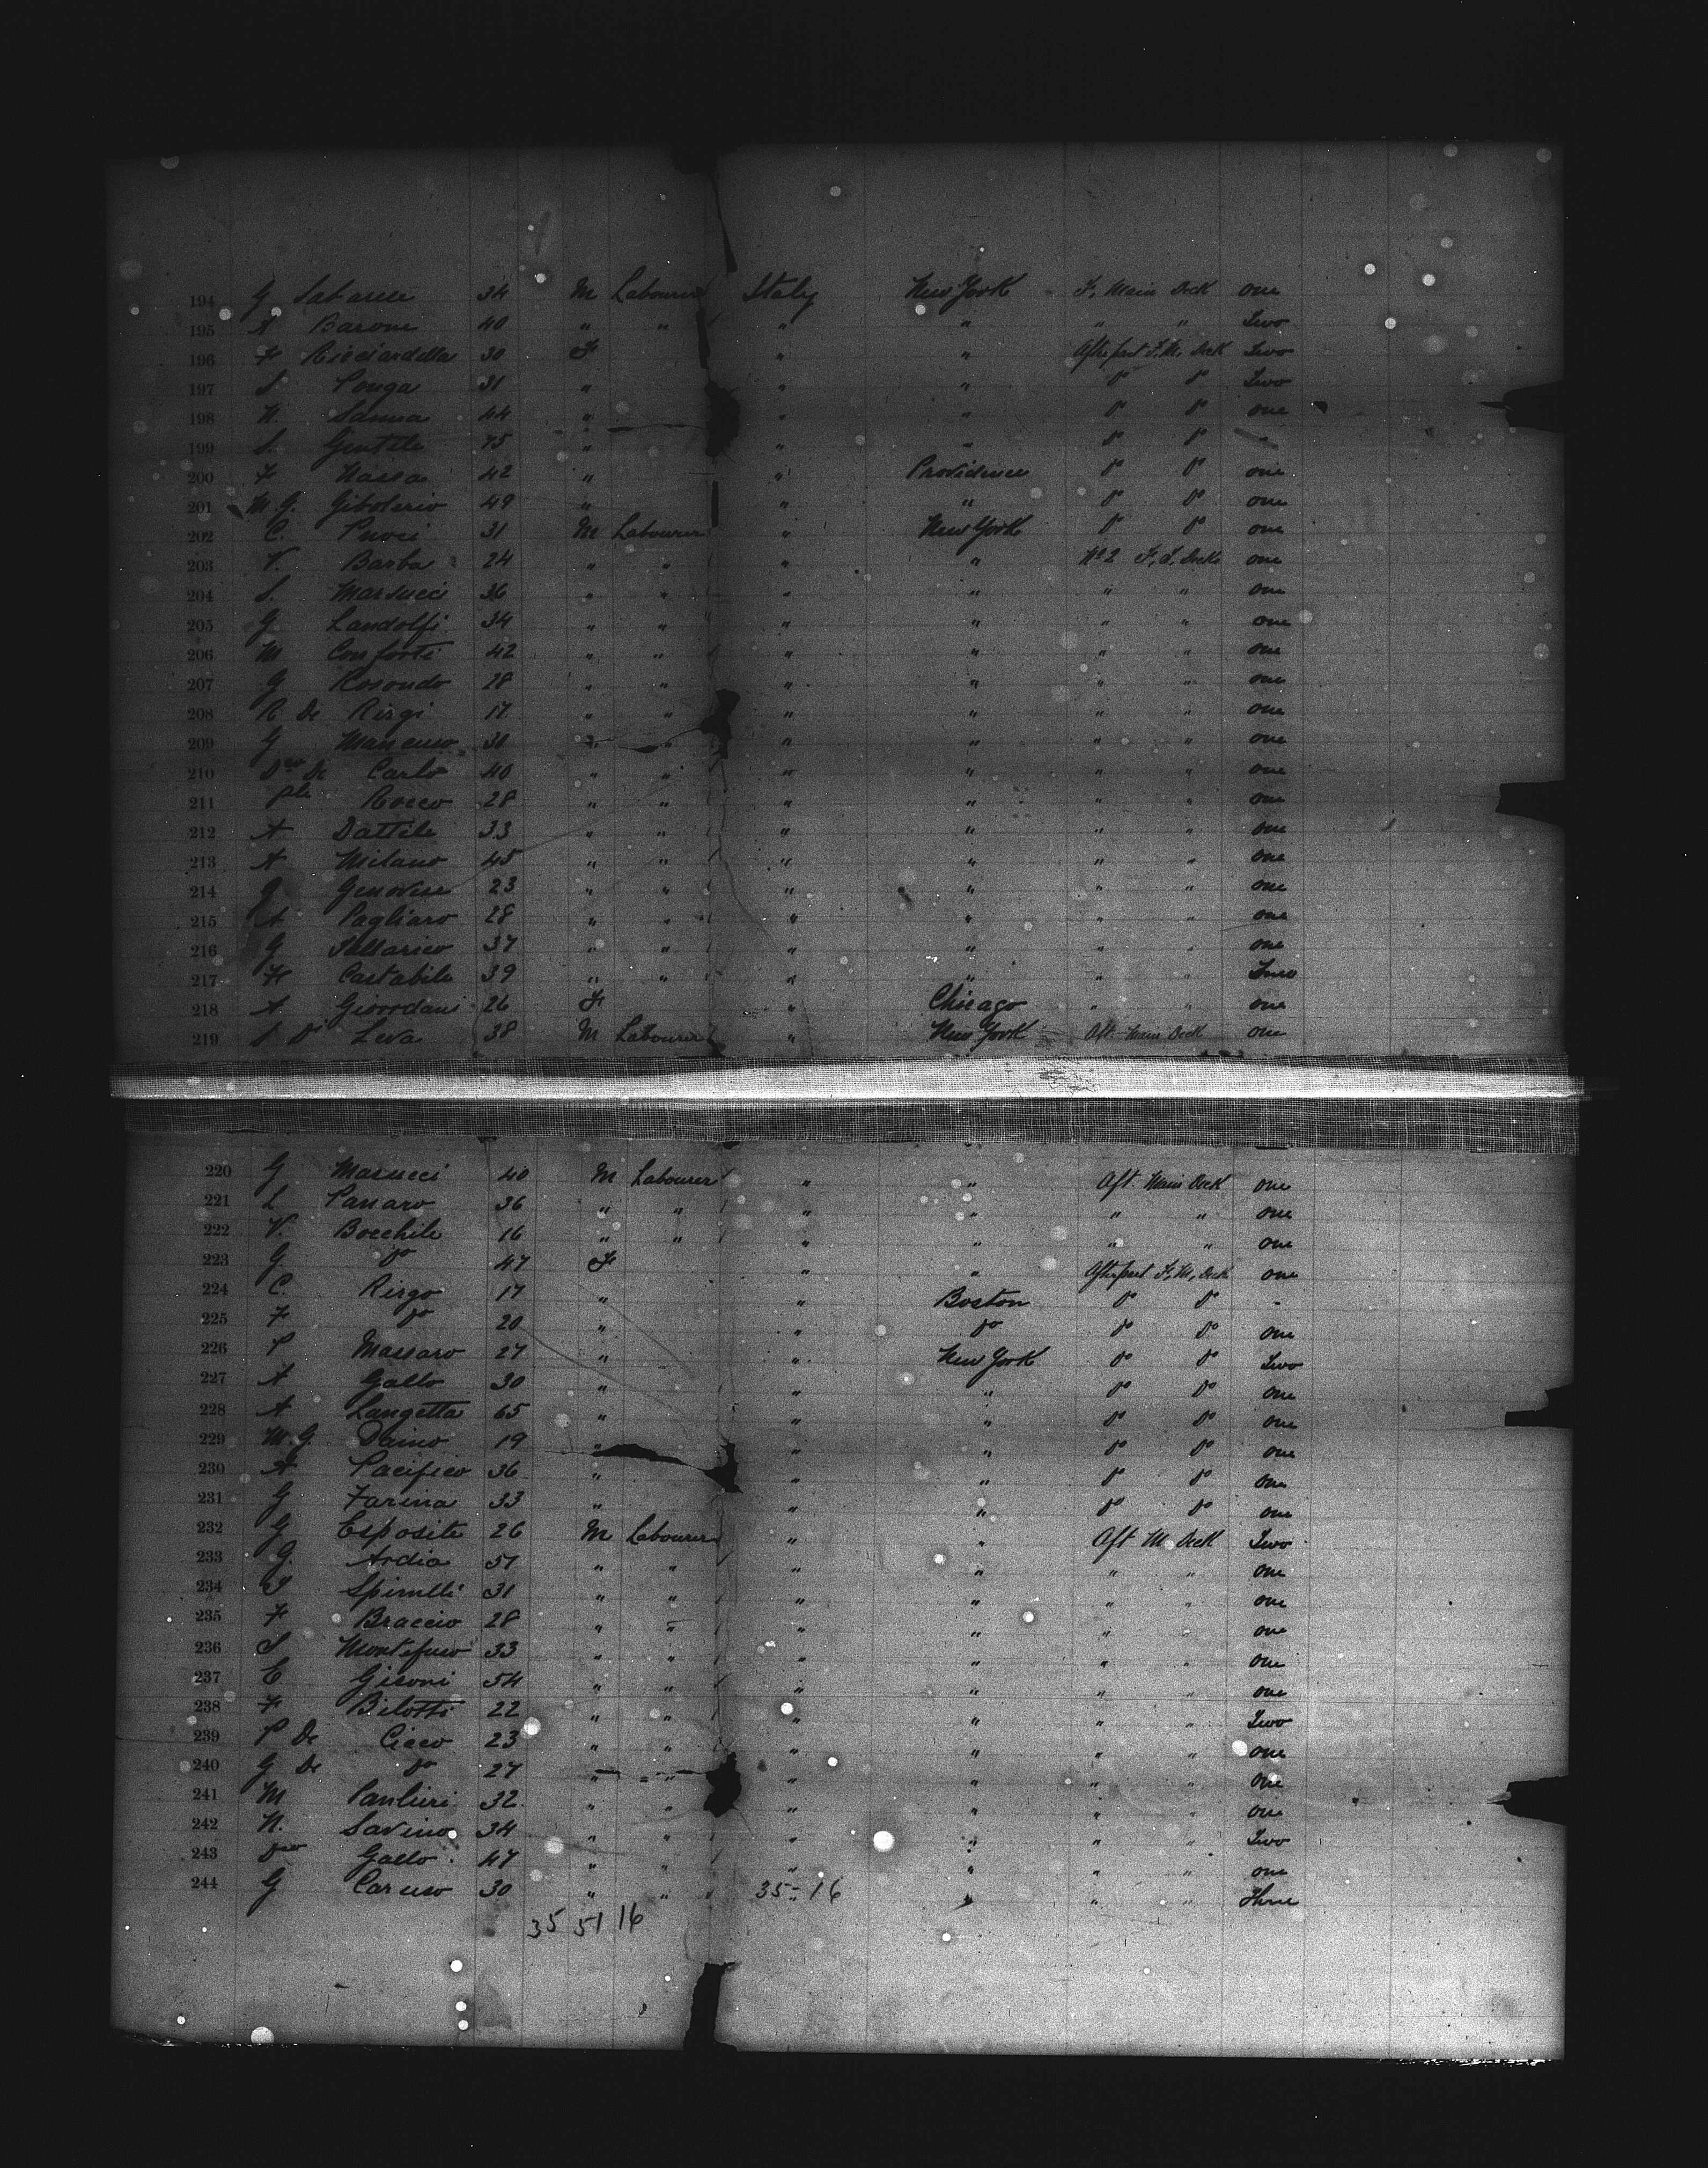 194 G 34 M Labourer Italy New York F. Main Deck one
195 A Barone 40 " " " " " " Two
196 F Ricciardella 30 F " " After part F. M. Deck Two
197 S Ponga 31 " " " do do Two
198 N. Sanna 44 " " " do do one
199 S. Gentile 45 " " " do do -
200 F Massa 42 " " Providence do do one
201 M G. 49 " " " do do one
202 C. 31 M Labourer " New York do do one
203 V. Barba 24 " " " " No 2 F. S. Deck one
204 S. Marsucci 36 " " " " " " one
205 G Landolfi 34 " " " " " " one
206 M Conforti 42 " " " " " " one
207 G Rosondo 28 " " " " " " one
208 R De Rirgi 17 " " " " " " one
209 G Mancuso 30 " " " " " " one
210 Dco De Carlo 40 " " " " " " one
211 Ple Rocco 28 " " " " " " one
212 A Dattile 33 " " " " " " one
213 A Milano 45 " " " " " " one
214 G Genovese 23 " " " " " " one
215 A Pagliaro 28 " " " " " " one
216 G Tallarico 37 " " " " " " one
217 F Castabile 39 " " " " " " Two
218 A Gioordani 26 F " Chicago " " one
219 S Di Leva 38 M Labourer " New York Aft Main Deck one
220 G Marucci 40 M Labourer " " Aft Main Deck one
221 L Panaro 36 " " " " " " one
222 V. Bocchile 16 " " " " " " one
223 G. do 47 F " " After part F. M. Deck one
224 C. Rirgo 17 " " Boston do do -
225 F do 20 " " do do do one
226 P Massaro 27 " " New York do do Two
227 A Gallo 30 " " " do do one
228 A Langetta 65 " " " do do one
229 M. G. Daino 19 " " " do do one
230 A Pacifico 36 " " " do do one
231 G Farina 33 " " " do do one
232 G Esposite 26 M Labourer " " Aft M Deck Two
233 G. Ardia 51 " " " " " " one
234 Spirelli 31 " " " " " " one
235 F Braccio 28 " " " " " " one
236 S Montefuso 33 " " " " " " one
237 C Gisoni 54 " " " " " " one
238 F Bilotti 22 " " " " " " Two
239 P De Cicco 23 " " " " " " one
240 G De do 27 " " " " " " one
241 M Paulieri 32 " " " " " " one
242 N. Savino 34 " " " " " " Two
243 Dco Gallo 47 " " " " " " one
244 G Caruso 30 " " 35-16 " " " Three
35 51 16